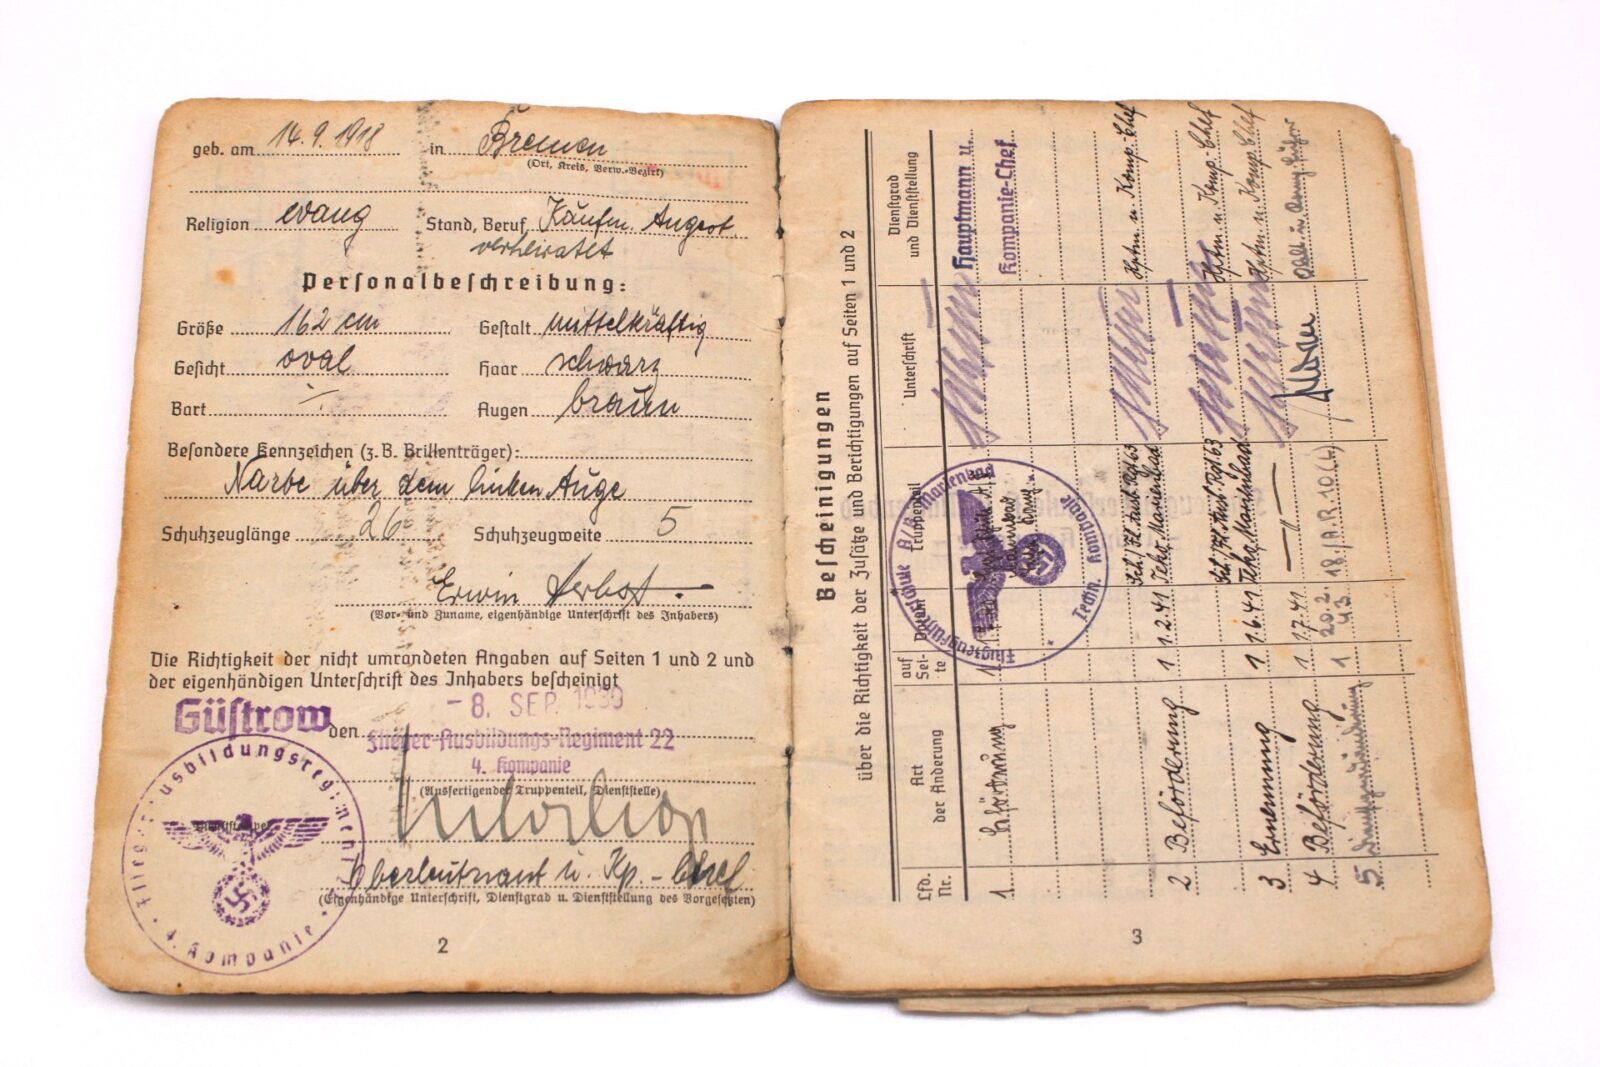 geb. am 14.9.1918 in Bremen
(Ort, Kreis, Verw.-Bezirk)
Religion evang Stand, Beruf Kaufm. Angest
verheiratet
Personalbeschreibung:
Größe 162 cm Gestalt mittelkräftig
Gesicht oval Haar schwarz
Bart -/. Augen braun
Besondere Kennzeichen (z.B. Brillenträger):
Narbe über dem linken Auge
Schuhzeuglänge 26 Schuhzeugweite 5
Erwin Herbst.
(Vor- und Zuname, eigenhändige Unterschrift des Inhabers)
Die Richtigkeit der nicht umrandeten Angaben auf Seiten 1 und 2 und
der eigenhändigen Unterschrift des Inhabers bescheinigt
-8. SEP. 1939
Güstrow den
Flieger-Ausbildungs-Regiment 22
4. Kompanie
(Ausfertigender Truppenteil, Dienststelle)
Oberleutnant u. Kp-Chef
(Eigenhändige Unterschrift, Dienstgrad u. Dienststellung des Vorgesetzten)
Dienststempel
4. Kompanie
2
Bescheinigungen
über die Richtigkeit der Zusätze und Berichtigungen auf Seiten 1 und 2
Lfd. Nr. Art der Änderung auf Seite Datum Truppenteil Unterschrift Dienstgrad und Dienststellung
1 1 Hauptmann u. Kompanie-Chef
Flugzeugführerschule A/B Marienbad
Techn. Kompanie
2 Beförderung 1 1.2.41 Hptm. u. Komp. Chef
3 Ernennung 1 1.6.41 Hptm. u. Komp. Chef
4 Beförderung 1 1.7.41 —"— Hptm. u. Komp. Chef
5. 1 20.2.43
3